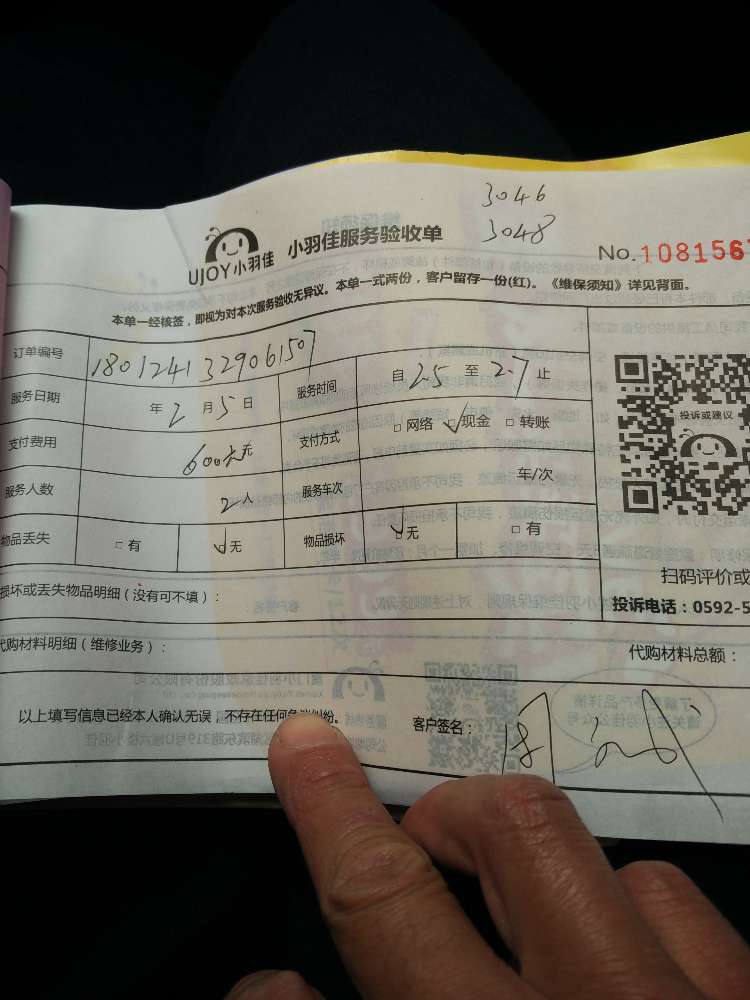 3046
3048
UJOY小羽佳 小羽佳服务验收单
No.1081561
本单一经核签，即视为对本次服务验收无异议。本单一式两份，客户留存一份(红)。《维保须知》详见背面。
订单编号 1801241329061507
服务日期 年2月5日 服务时间 自2.5至2.7止
支付费用 600元 支付方式 □网络 ✓现金 □转账
服务人数 2人 服务车次 车/次
物品丢失 □有 ✓无 物品损坏 ✓无 □有
投诉或建议
扫码评价或
投诉电话：0592-5
损坏或丢失物品明细（没有可不填）：
代购材料明细（维修业务）： 代购材料总额：
以上填写信息已经本人确认无误，不存在任何 纠纷。 客户签名：